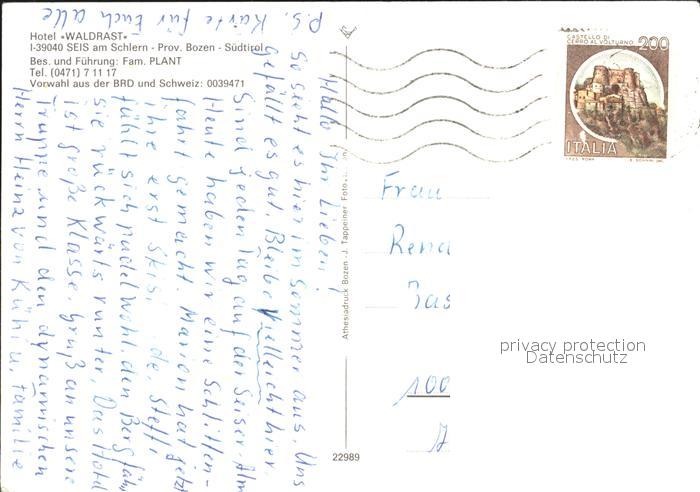 Hotel «WALDRAST»
I-39040 SEIS am Schlern - Prov. Bozen - Südtirol
Bes. und Führung: Fam. PLANT
Tel. (0471) 7 11 17
Vorwahl aus der BRD und Schweiz: 0039471
P.S. Karte für Euch alle
Hallo Ihr Lieben!
So sieht es hier im Sommer aus. Uns
gefällt es gut. Bleibe vielleicht hier.
Sind jeden Tag auf der Seiser-Alm
Heute haben wir eine Schlitten-
fahrt gemacht. Marion hat jetzt
ihre erst Skisi de, Steffi
fühlt sich pudelwohl. den Berg fäh
sie rückwärts runter, Das Hotel
ist große Klasse. Gruß an unsere
Truppe und den dynamischen
Herrn Heinz von Kühl u. Familie
Athesiadruck Bozen - J. Tappeiner Foto
22989
CASTELLO DI
CERRO AL VOLTURNO
200
ITALIA
I.P.Z.S. ROMA
Frau
Rena
Jas
100
privacy protection
Datenschutz